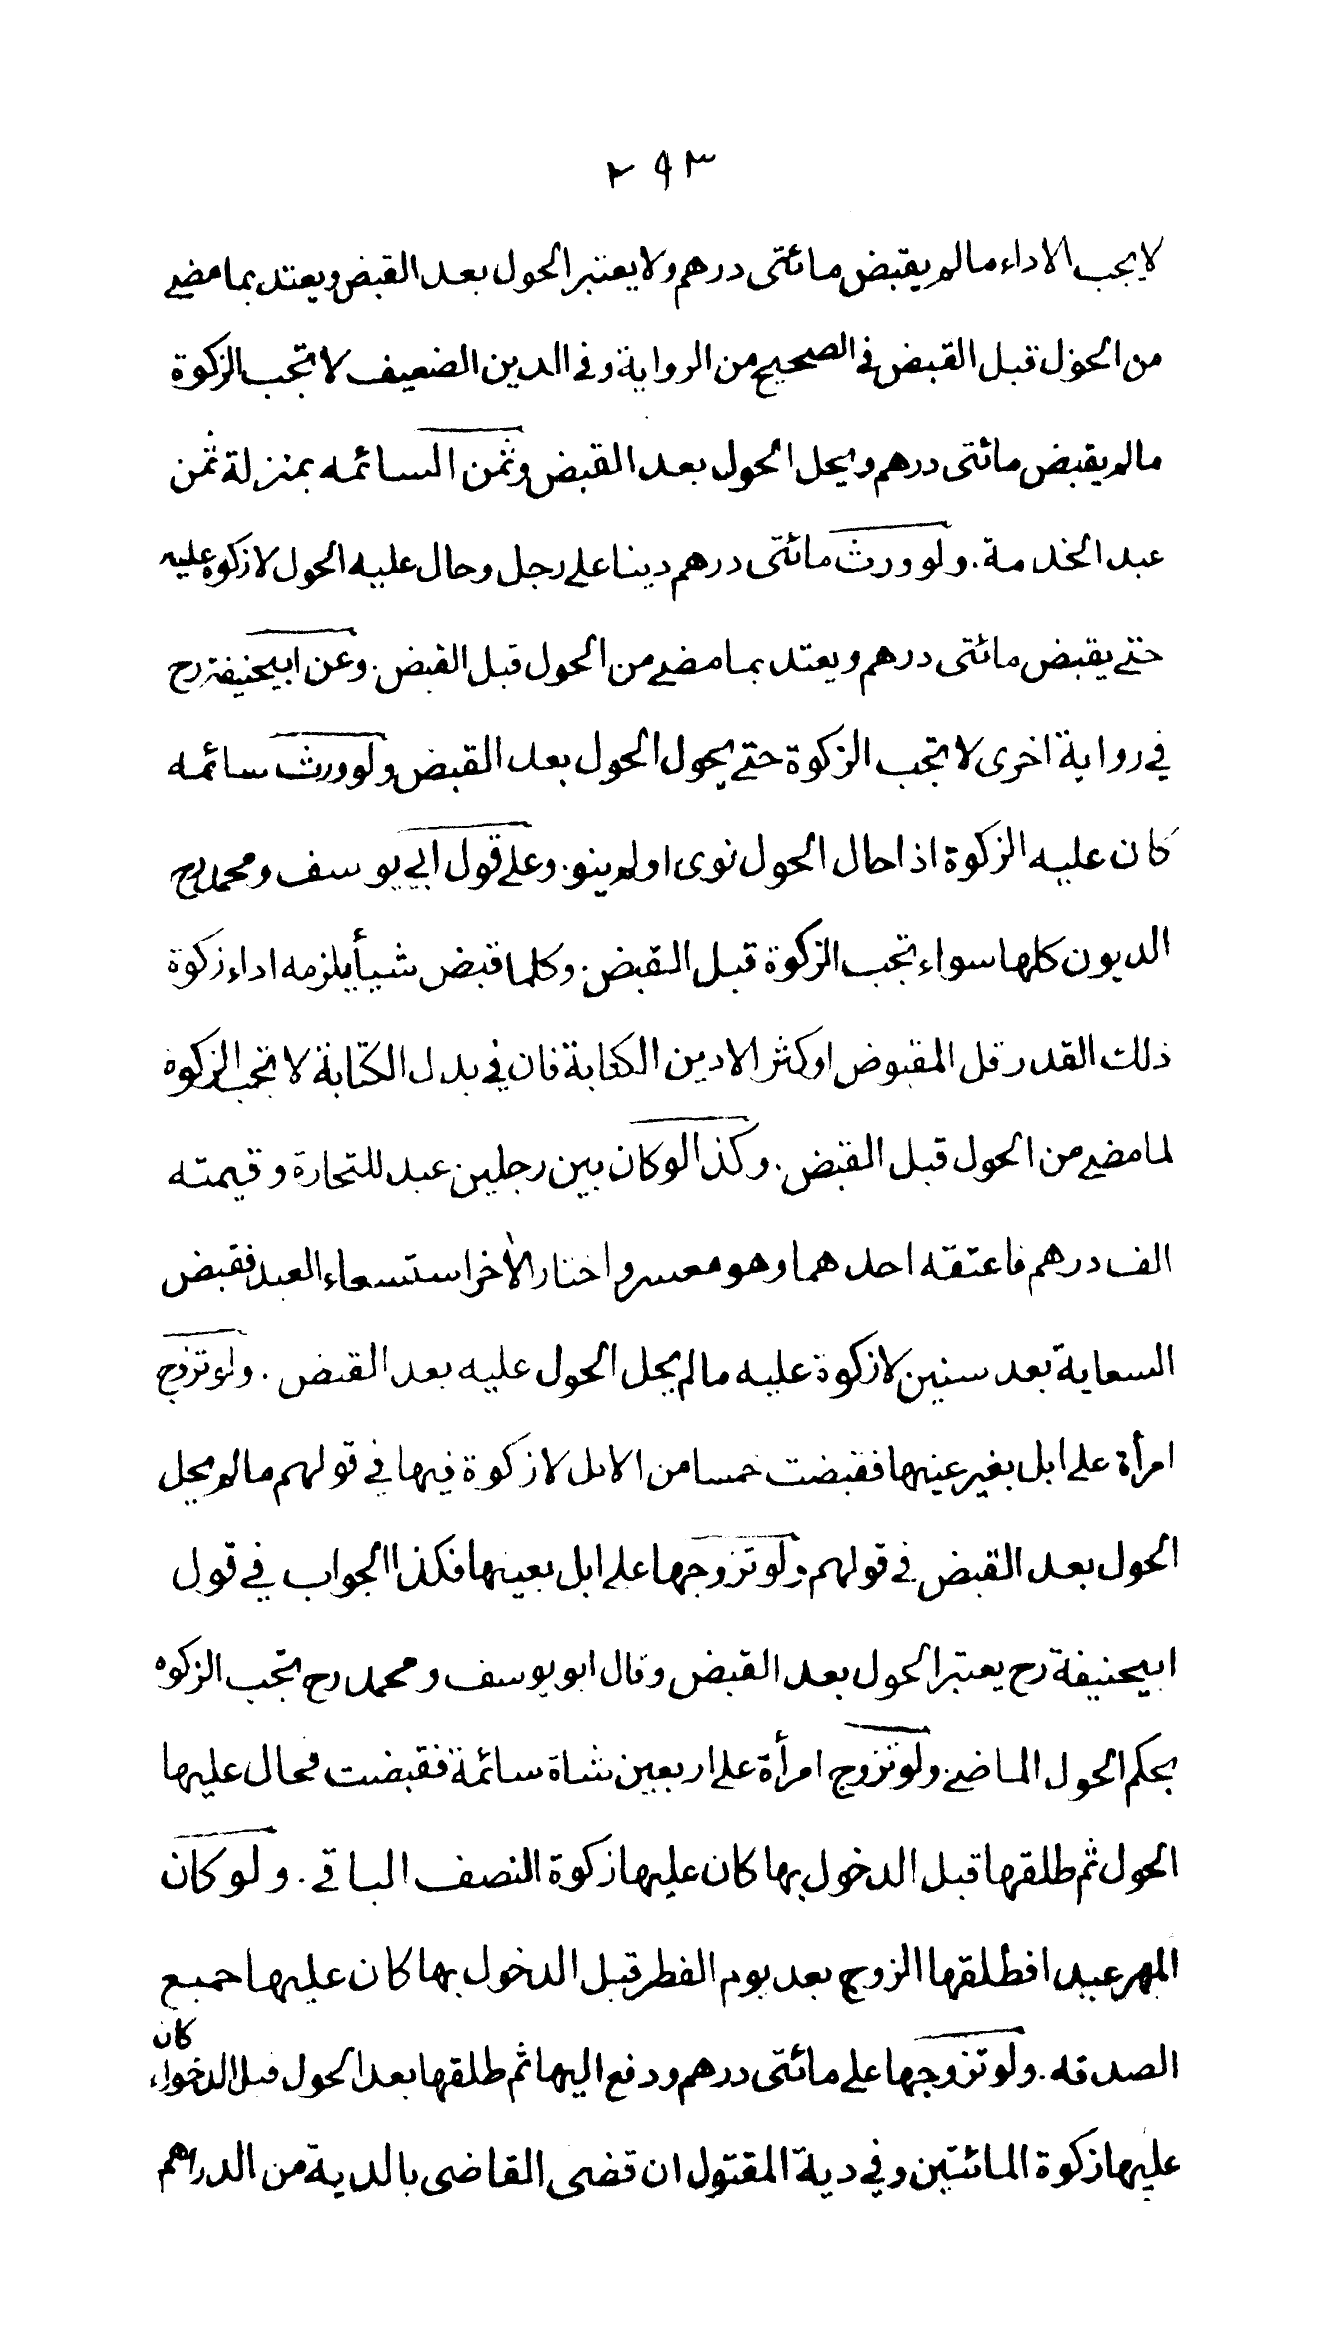 ٢٩٣
لا يجب الاداء مالم يقبض مائتى درهم ولا يعتبر الحول بعد القبض ويعتد بما مضى
من الحول قبل القبض فى الصحيح من الرواية وفى الدين الضعيف لا تجب الزكوة
مالم يقبض مائتى درهم ويحل الحول بعد القبض وثمن السائمه بمنزلة ثمن
عبد الخدمة. ولو ورث مائتى درهم دينا على رجل وحال عليه الحول لا زكوة عليه
حتى يقبض مائتى درهم ويعتد بما مضى من الحول قبل القبض. وعن ابيحنيفة رح
في رواية اخرى لا تجب الزكوة حتى يحول الحول بعد القبض ولو ورث سائمه
كان عليه الزكوة اذا حال الحول نوى اولم ينو. وعلى قول ابي يوسف ومحمد رح
الديون كلها سواء تجب الزكوة قبل القبض. وكلما قبض شيأ يلزمه اداء زكوة
ذلك القدر قل المقبوض او كثر الا دين الكتابة فان في بدل الكتابة لا تجب الزكوه
لما مضى من الحول قبل القبض. وكذا لو كان بين رجلين عبد للتجارة وقيمته
الف درهم فاعتقه احدهما وهو معسر واختار الأخر استسعاء العبد فقبض
السعاية بعد سنين لا زكوة عليه مالم يحل الحول عليه بعد القبض. ولو تزوج
امرأة على ابل بغير عينها فقبضت خمسا من الابل لا زكوة فيها في قولهم مالم يحل
الحول بعد القبض في قولهم ولو تزوجها على ابل بعينها فكذا الجواب في قول
ابيحنيفة رح يعتبر الحول بعد القبض وقال ابو يوسف ومحمد رح تجب الزكوه
بحكم الحول الماضي ولو تزوج امرأة على اربعين شاة سائمة فقبضت فحال عليها
الحول ثم طلقها قبل الدخول بها كان عليها زكوة النصف الباقي. ولو كان
المهر عبيدا فطلقها الزوج بعد يوم الفطر قبل الدخول بها كان عليها جميع
الصدقه. ولو تزوجها على مائتى درهم ودفع اليها ثم طلقها بعد الحول قبل الدخول كان
عليها زكوة المائتين وفي دية المقتول ان قضى القاضى بالدية من الدراهم